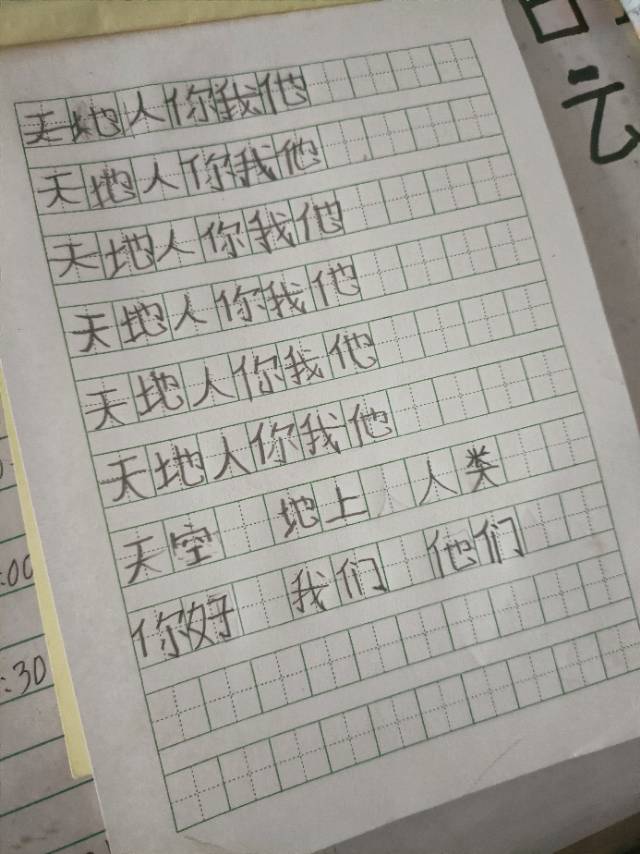 天地人你我他
天地人你我他
天地人你我他
天地人你我他
天地人你我他
天地人你我他
天空 地上 人类
你好 我们 他们
云
:00
:30